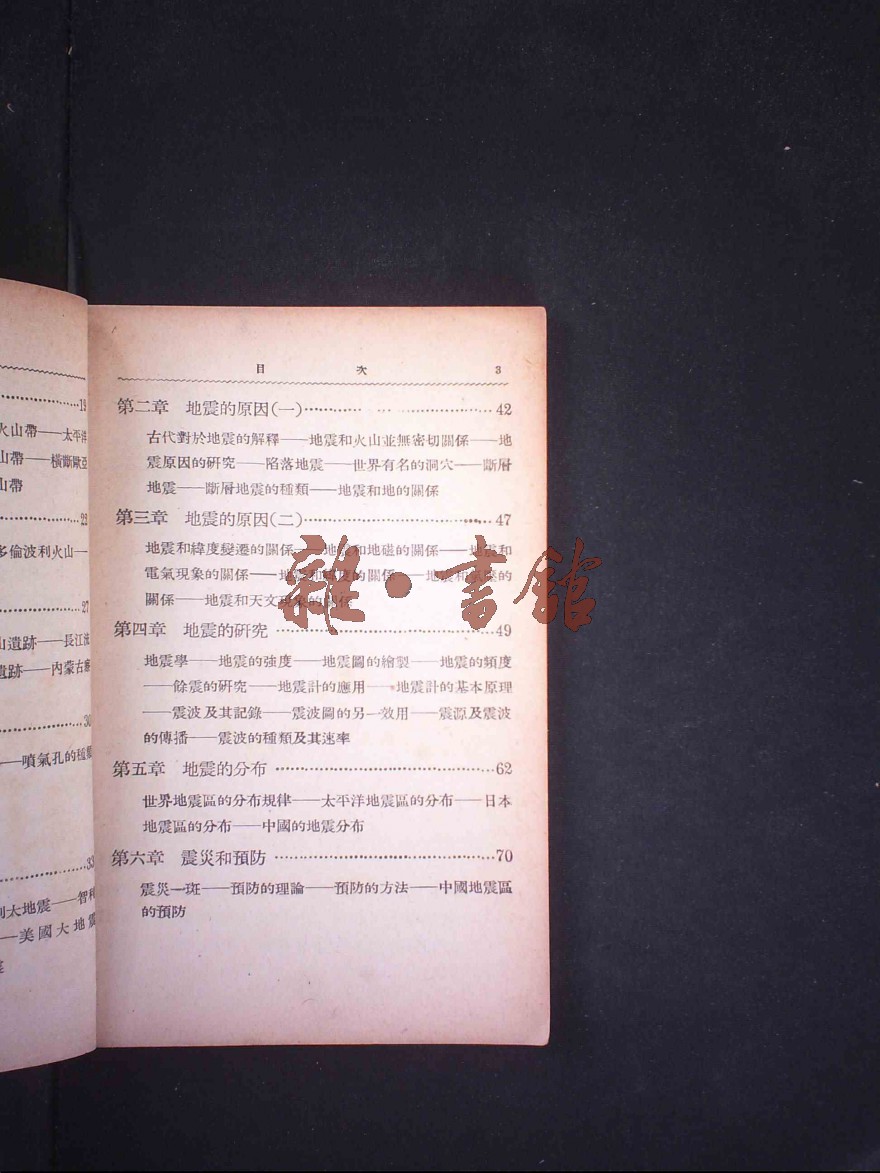 19
火山帶——太平洋
山帶——橫斷歐亞
山帶
23
多倫波利火山一
27
山遺跡——長江流
遺跡——內蒙古塞
30
——噴氣孔的種類
33
利大地震——智利
——美國大地震
目 次 3
第二章 地震的原因(一)……………………42
古代對於地震的解釋——地震和火山並無密切關係——地
震原因的研究——陷落地震——世界有名的洞穴——斷層
地震——斷層地震的種類——地震和地的關係
第三章 地震的原因(二)……………………47
地震和緯度變遷的關係——地震和地磁的關係——地震和
電氣現象的關係——地震和緯度的關係——地震和氣壓的
關係——地震和天文現象的關係
第四章 地震的研究……………………49
地震學——地震的強度——地震圖的繪製——地震的頻度
——餘震的研究——地震計的應用——地震計的基本原理
——震波及其記錄——震波圖的另一效用——震源及震波
的傳播——震波的種類及其速率
第五章 地震的分布……………………62
世界地震區的分布規律——太平洋地震區的分布——日本
地震區的分布——中國的地震分布
第六章 震災和預防……………………70
震災一斑——預防的理論——預防的方法——中國地震區
的預防
雜·書館